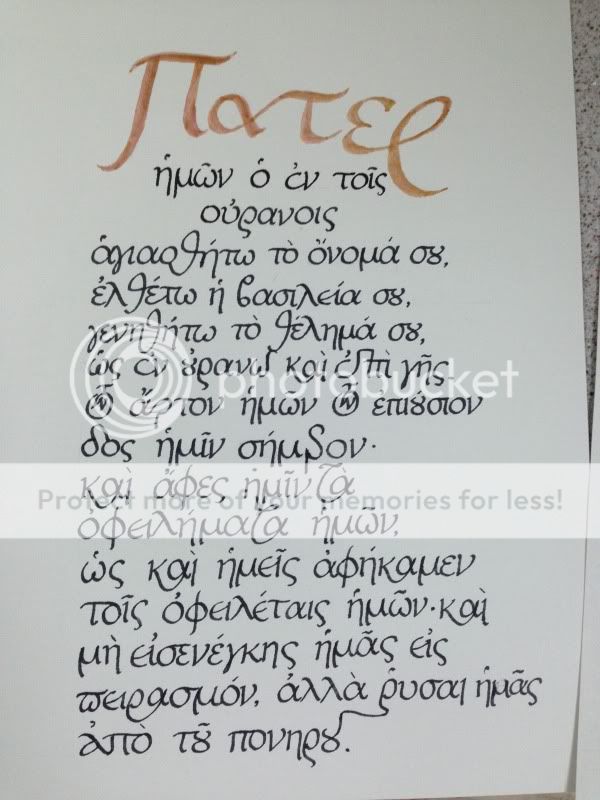 Πατερ
ἡμῶν ὁ ἐν τοῖς
οὐρανοις
ἁγιασθήτω τὸ ὄνομά σȣ,
ἐλθέτω ἡ βασιλεία σȣ,
γενηθήτω τὸ θέλημά σȣ,
ὡς ἐν ȣρανω καὶ ἐπὶ γῆς
photobucket
τὸν ἄρτον ἡμῶν τὸν ἐπιȣσιον
δος ἡμῖν σήμερον·
καὶ ἄφες ἡμῖν τὰ
Protect more of your memories for less!
ὀφειλήματα ἡμῶν,
ὡς καὶ ἡμεῖς ἀφήκαμεν
τοῖς ὀφειλέταις ἡμῶν· καὶ
μὴ εἰσενέγκης ἡμᾶς εἰς
πειρασμόν, ἀλλὰ ῥυσαι ἡμᾶς
ἀπὸ τȣ͂ πονηρȣ.